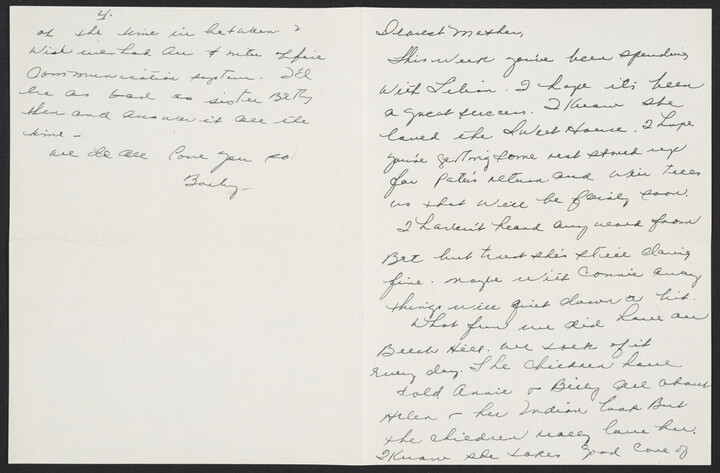 4.
of the time in between?
Wish we had an inter office
Communication system. I'd
be as bad as sister Betty
then and answer it all the
time –
We do all love you so
Dearest Mother,
This week you've been spending
with Lilian. I hope it's been
a great success. I know she
loved the Sweet House. I hope
you're getting some rest stored up
for Pete's return and
us that will be fairly soon.
I haven't heard any word from
Bet but trust she's still doing
fine. Maybe with Connie away
things will quiet down a bit.
What fun we did have at
Beech Hill. We talk of it
every day. The children have
told Annie & Billy all about
Helen & her Indian look But
the children really love her.
I know she takes good care of